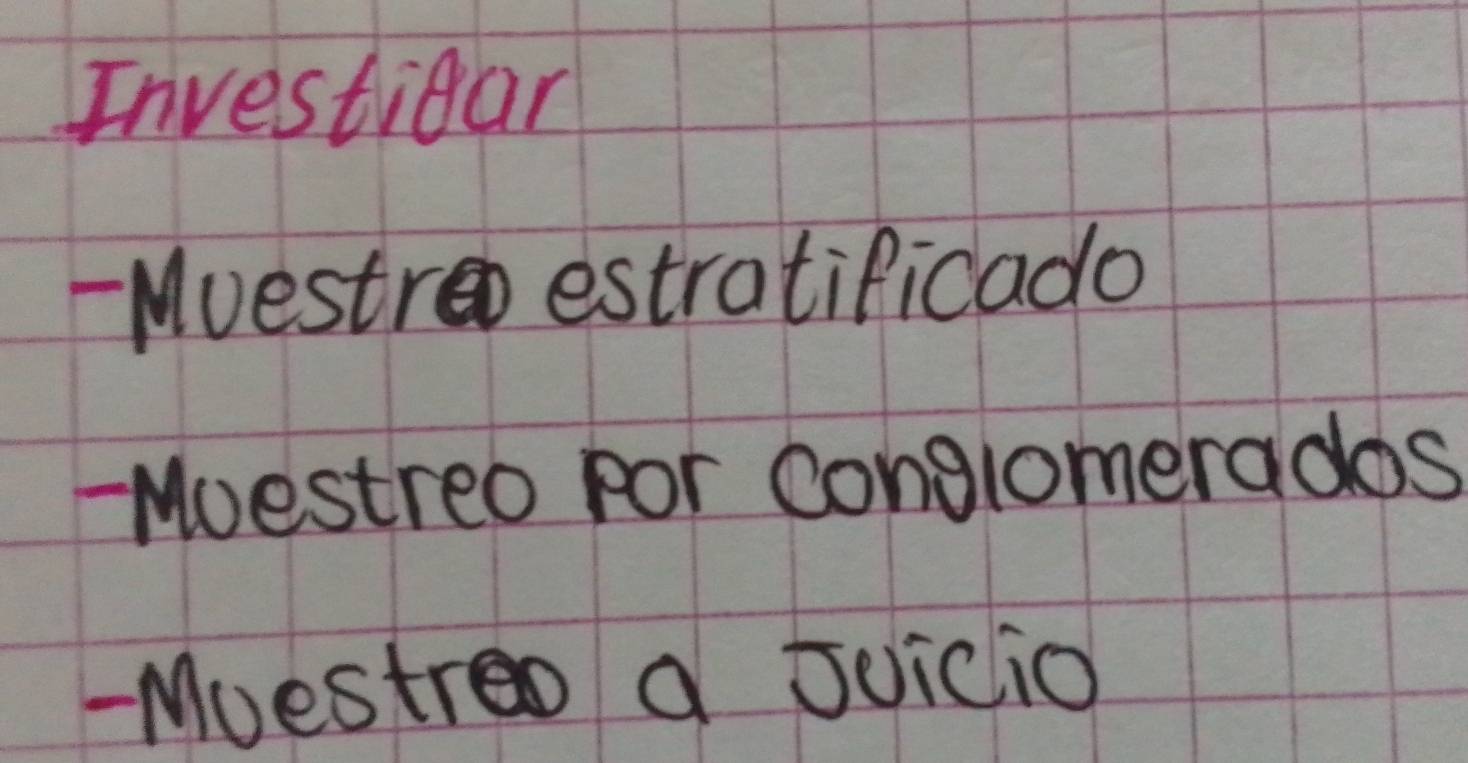 Investigar
-Muestreo estratificado
-Muestreo por conglomerados
-Muestreo a Juicio